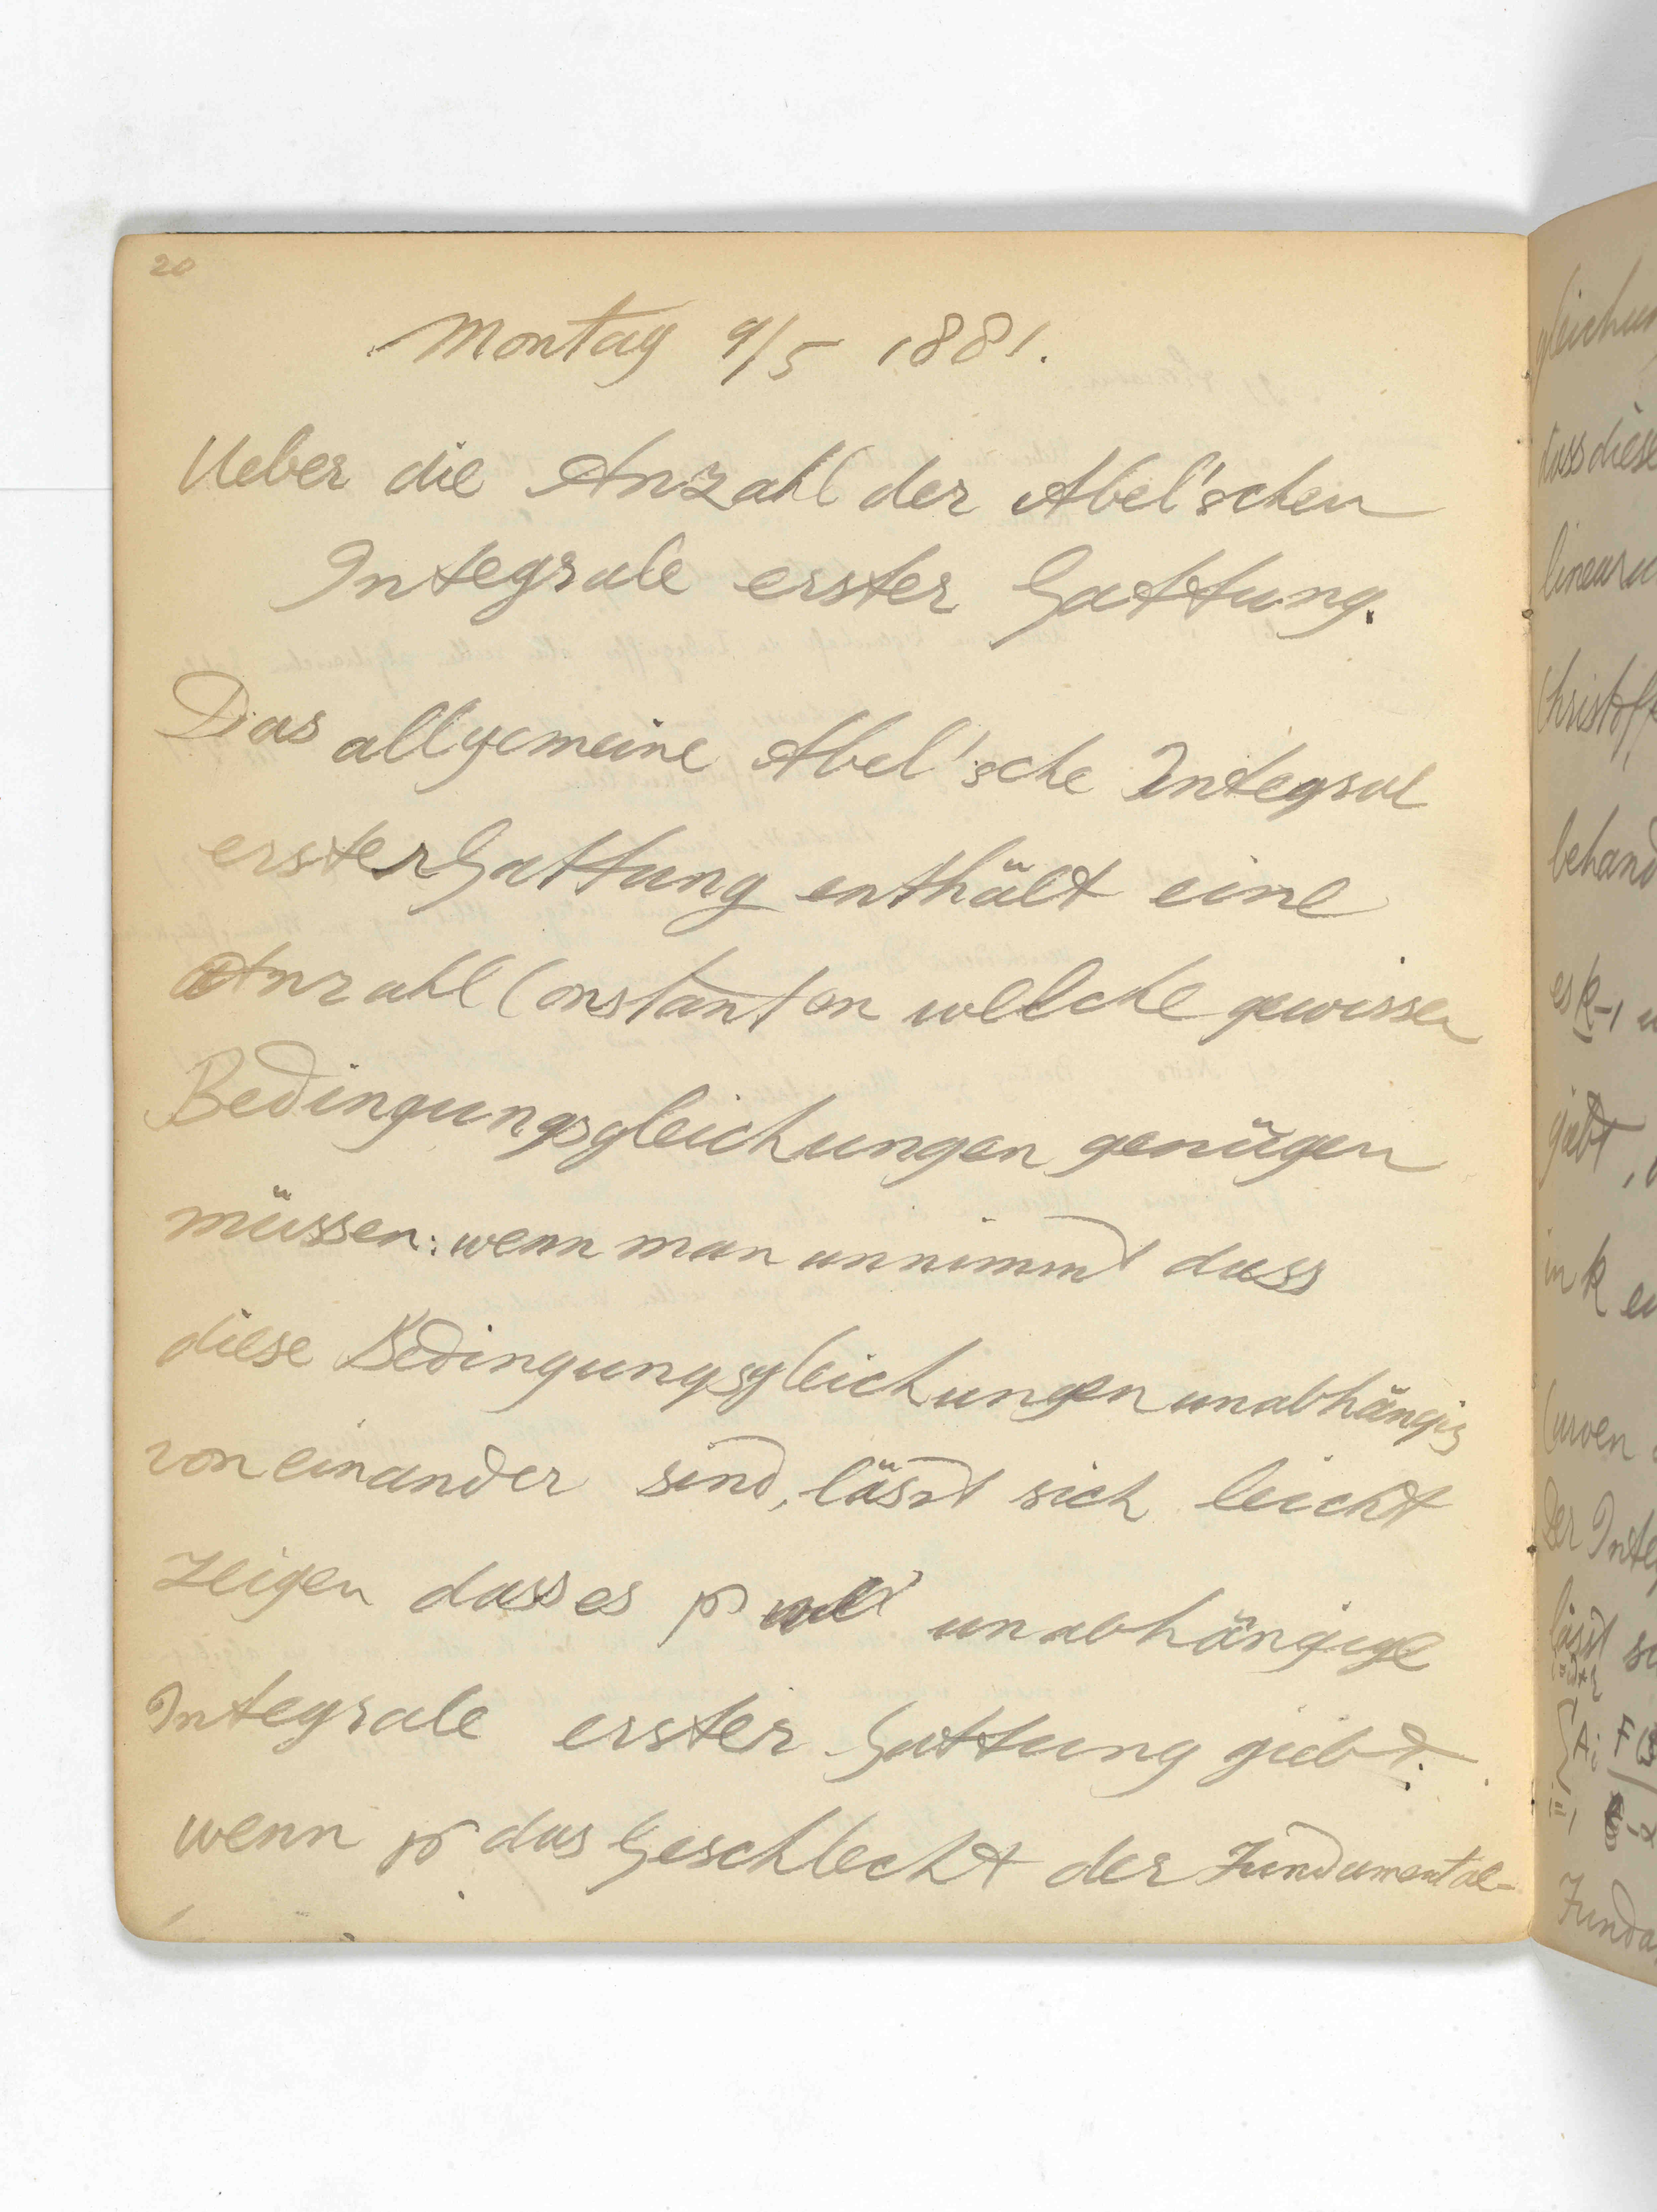 20
Montag 9/5 1881.
Ueber die Anzahl der Abel'schen
Integrale erster Gattung.
Das allgemeine Abel'sche Integral
erster Gattung enthält eine
Anzahl Constanten welche gewissen
Bedingungsgleichungen genügen
müssen: wenn man annimmt dass
diese Bedingungsgleichungen unabhängig
von einander sind, lässt sich leicht
zeigen dass es p unabhängige
Integrale erster Gattung giebt.
wenn p das Geschlecht der Fundamental-
dass diese
es k-1
giebt,
in k
Curven
Der
lässt